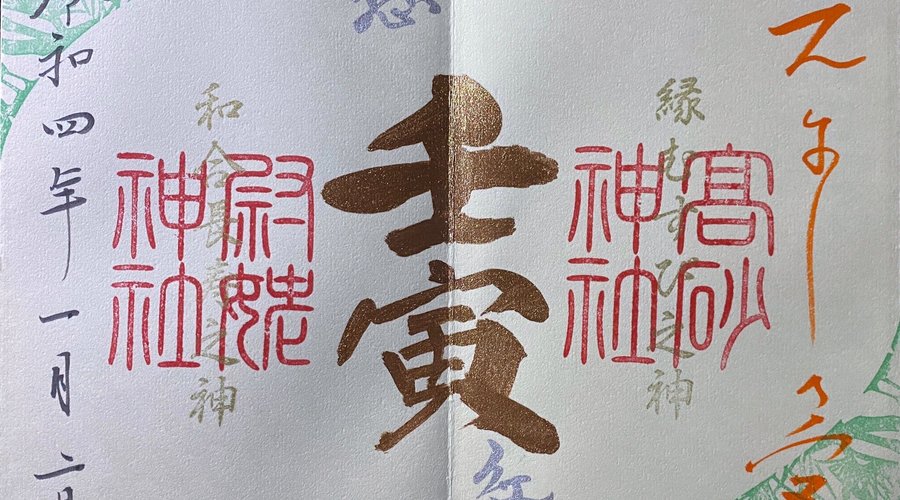 縁むすび之神
髙砂
神社
壬寅
和合長寿之神
尉姥
神社
令和四年一月二日